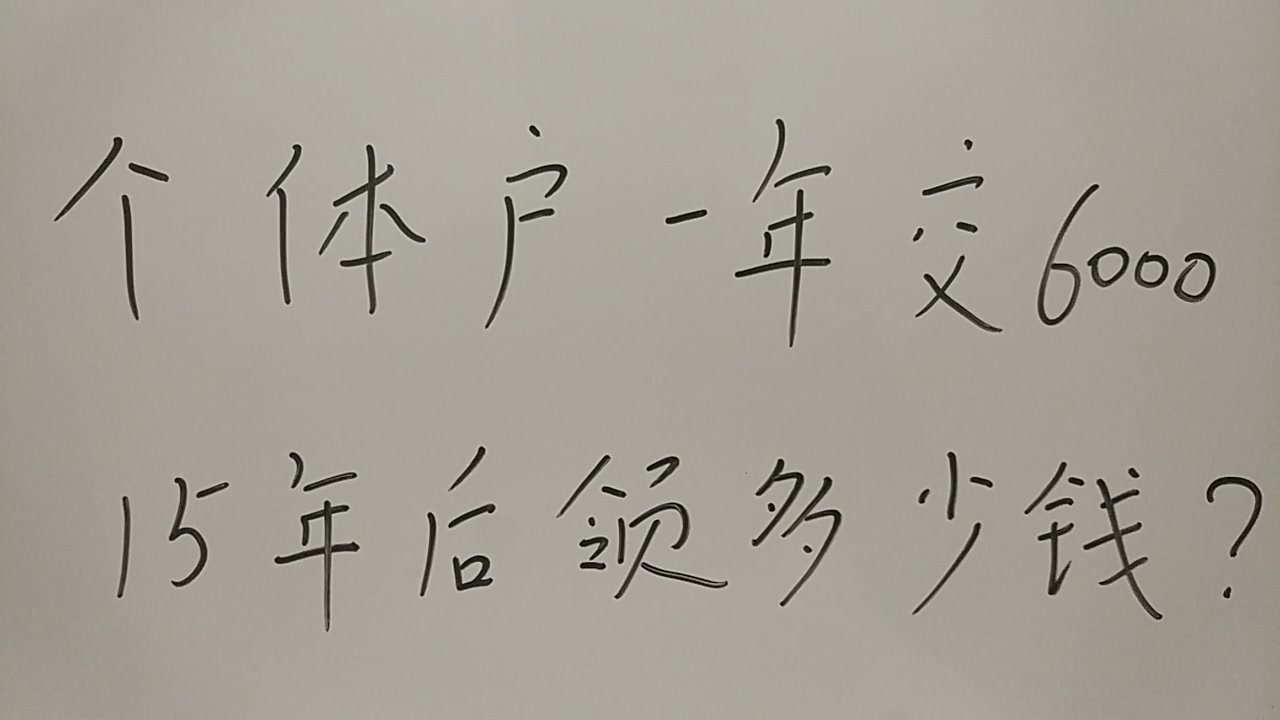 个体户一年交6000
15年后领多少钱?